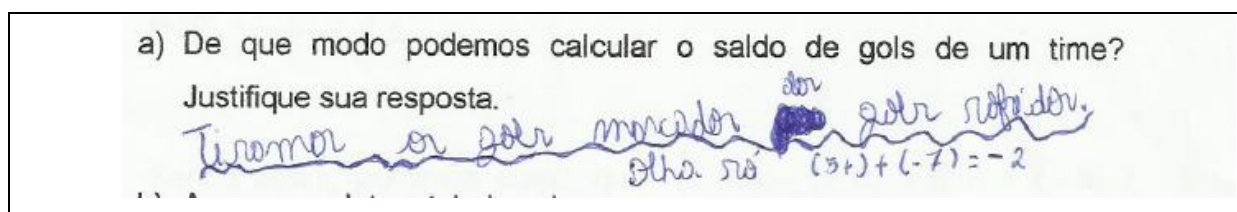 a) De que modo podemos calcular o saldo de gols de um time?
Justifique sua resposta.
Tiramos os gols marcados dos gols sofridos.
Olha só (5+)+(-7)=-2